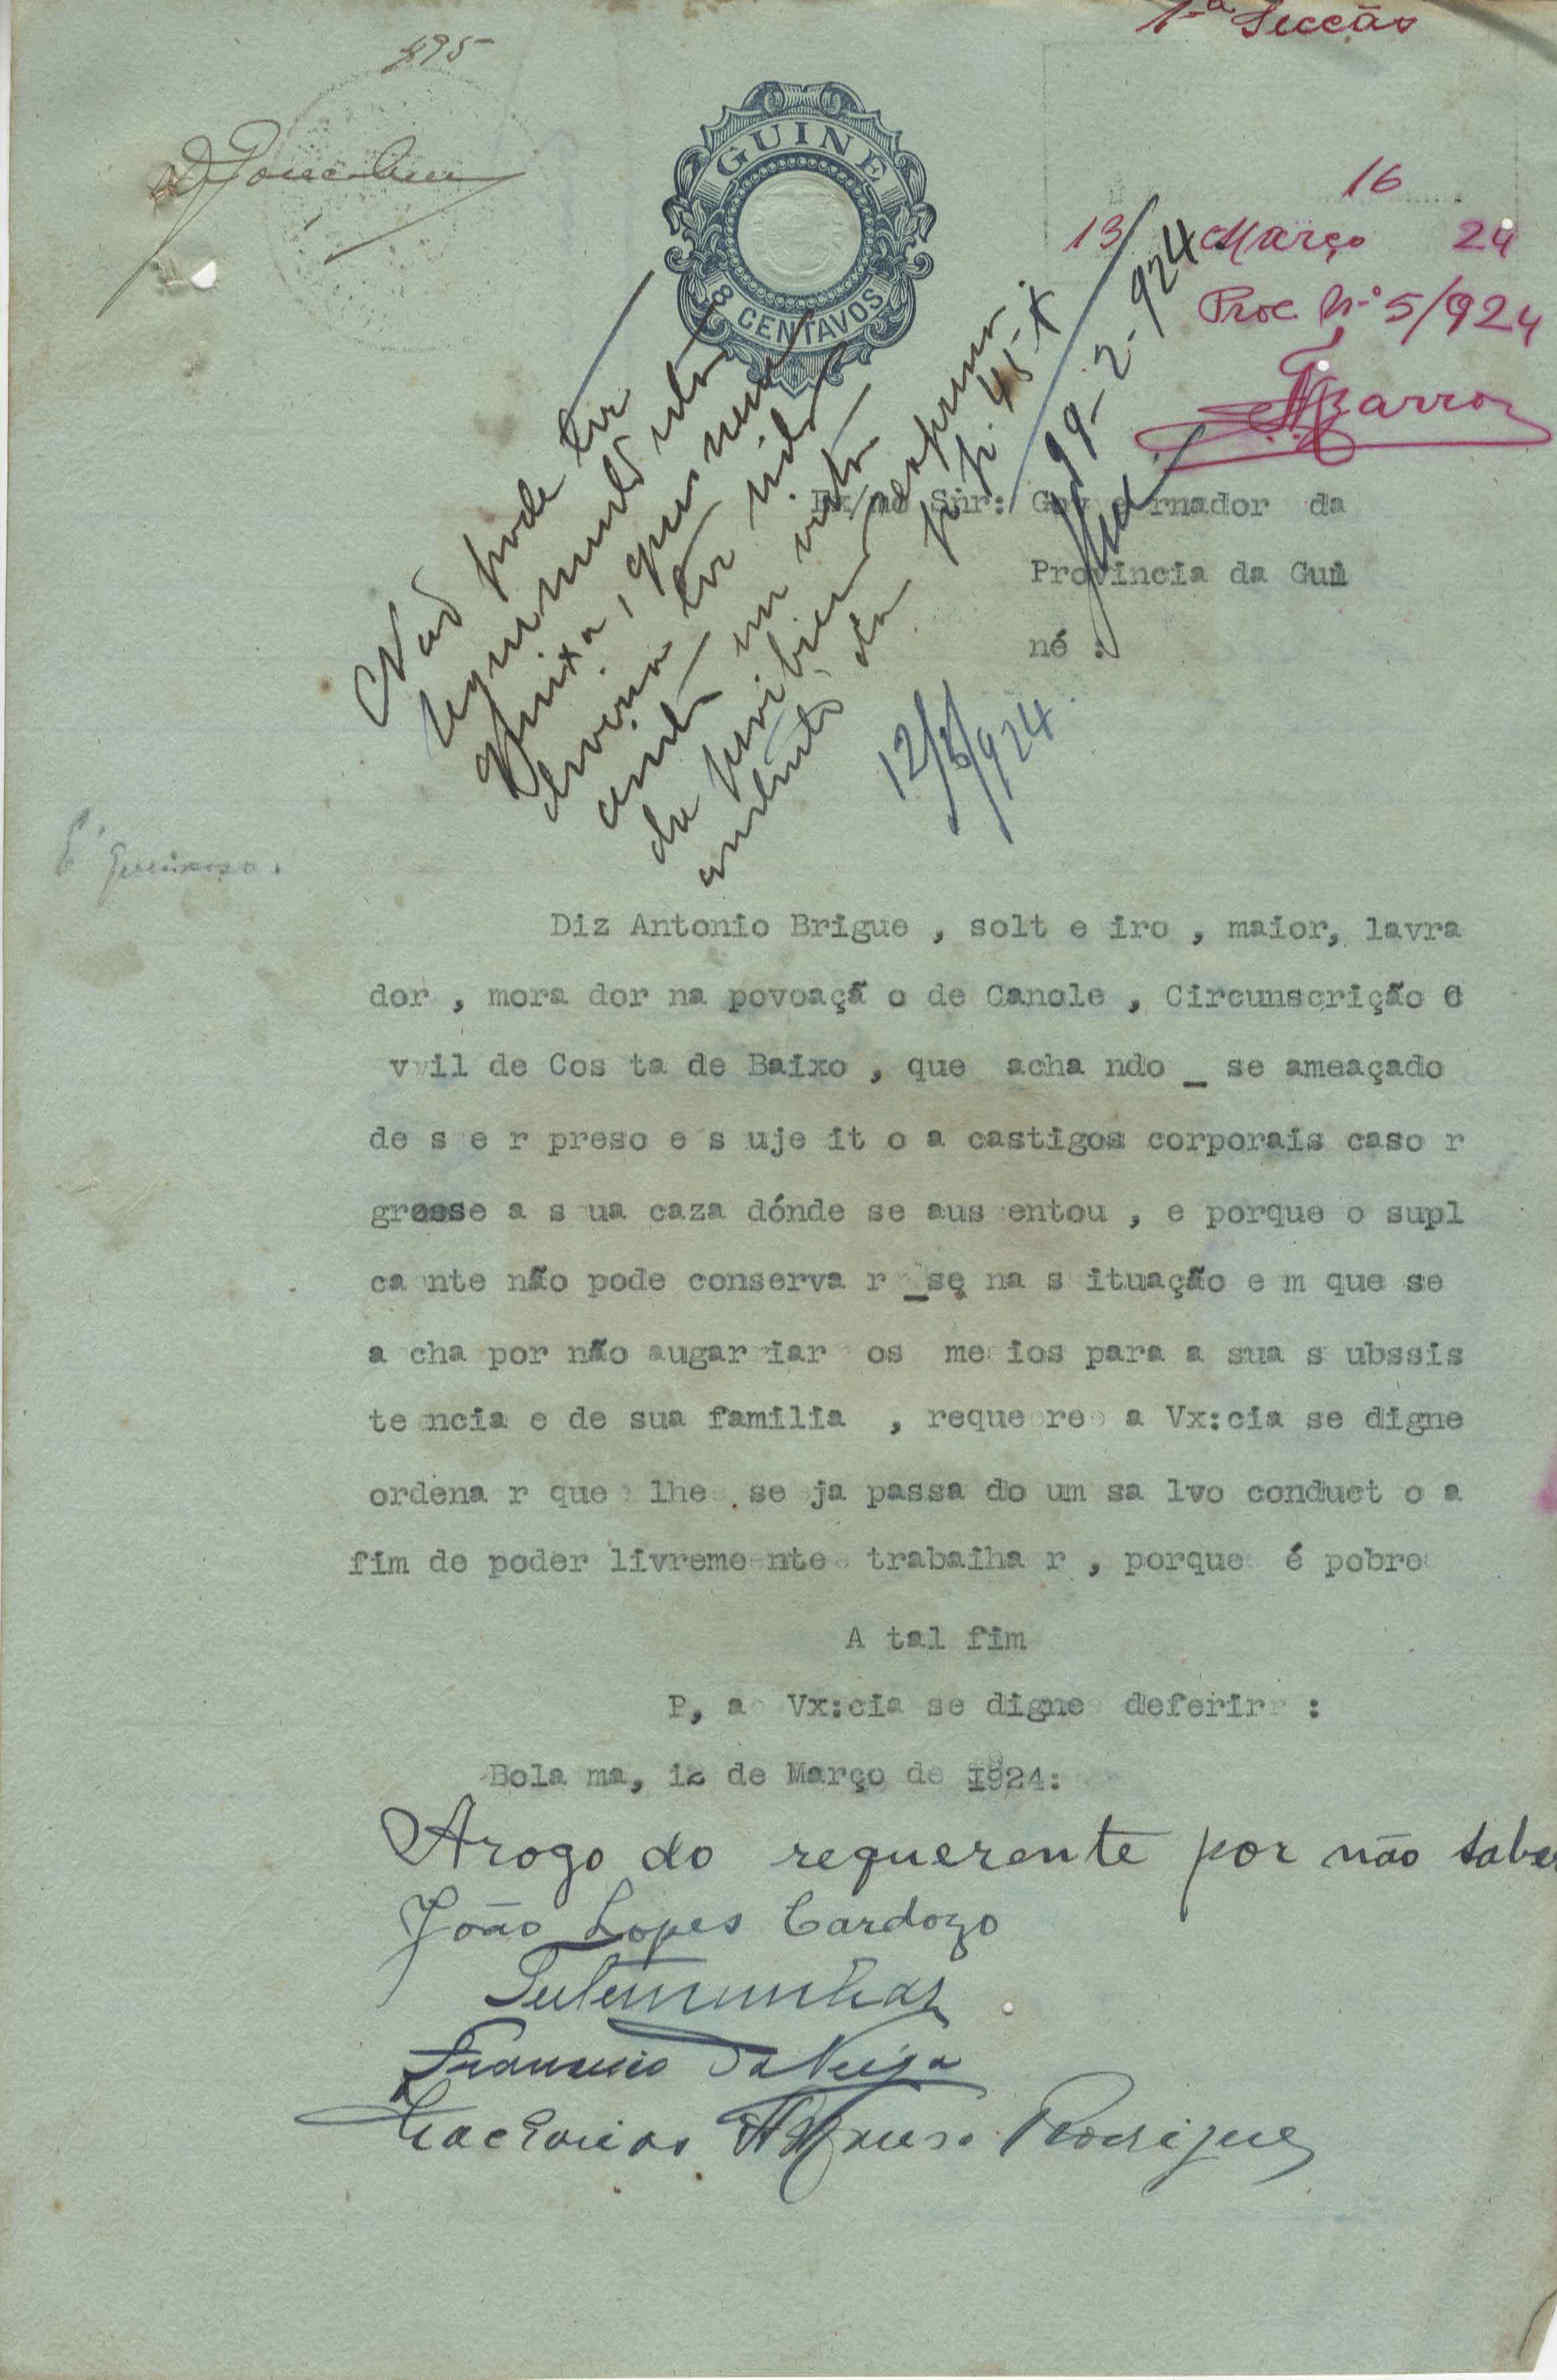 1.ª Secção
495
GUINE
8 CENTAVOS
16
13 Março 24
Proc. N.º 5/924
Barros
Não pode ter
requerimento
queixa, que nem
deveria ter sido
em vista
da
da p. p. 45-X
19-2-924
12/3/924
Ex/mo Snr: Gov e rnador da
Provincia da Gui
né :
É queixoso.
Diz Antonio Brigue , solt e iro , maior, lavra
dor , mora dor na povoaçã o de Canole , Circunscrição C
vvil de Cos ta de Baixo , que acha ndo _ se ameaçado
de s e r preso e s uje it o a castigos corporais caso r
gresse a s ua caza dónde se aus entou , e porque o supl
ca nte não pode conserva r _se na s ituação e m que se
a cha por não augar iar os me ios para a sua s ubssis
te ncia e de sua familia , reque re a Vx:cia se digne
ordena r que lhe se ja passa do um sa lvo conduct o a
fim de poder livreme nte trabalha r , porque é pobre
A tal fim
P, a Vx:cia se digne deferir :
Bola ma, 12 de Março de 1924:
Arogo do requerente por não saber
João Lopes Cardozo
Testemunhas
Francisco da Veiga
Zacharias Affonso Rodrigues